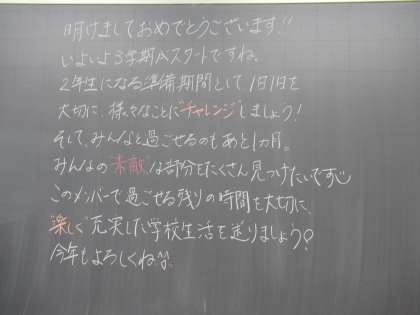 明けましておめでとうございます!!
いよいよ3学期がスタートですね。
2年生になる準備期間として1日1日を
大切に、様々なことに"チャレンジ"しましょう!
そして、みんなと過ごせるのもあと1カ月。
みんなの"素敵"な部分をたくさん見つけたいです
このメンバーで過ごせる残りの時間を大切に、
"楽しく"充実した学校生活を送りましょう!
今年もよろしくね